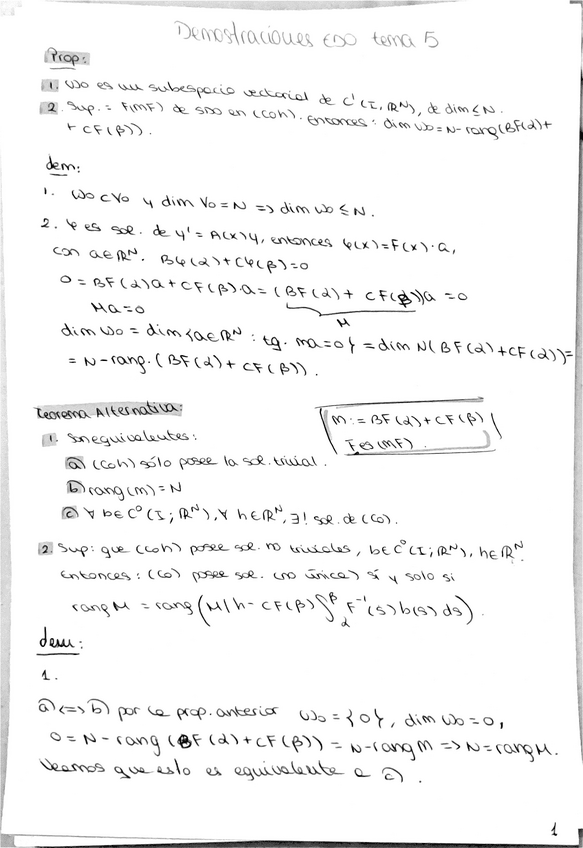 Demostraciones EDO tema 5
Prop:
1. W₀ es un subespacio vectorial de C¹(I, ℝᴺ), de dim ≤ N.
2. Sup. = F(MF) de SDO en (COh). Entonces: dim W₀ = N - rang(BF(α)+
+ CF(β)).
dem:
1. W₀ ⊂ V₀ y dim V₀ = N => dim W₀ ≤ N.
2. φ es sol. de y' = A(x)y, entonces φ(x) = F(x)·a,
con a∈ℝᴺ. Bφ(α)+Cφ(β)=0
0 = BF(α)a + CF(β)·a = (BF(α) + CF(β))a = 0
M
Ma = 0
dim W₀ = dim {a∈ℝᴺ : tg. Ma=0} = dim N(BF(α)+CF(α))=
= N - rang. (BF(α) + CF(β)).
Teorema Alternativa:
M := BF(α)+CF(β)
F es (MF).
1. Son equivalentes:
a) (COh) sólo posee la sol. trivial.
b) rang(M) = N
c) ∀ b∈C⁰(I; ℝᴺ), ∀ h∈ℝᴺ, ∃! sol. de (CO).
2. Sup: que (COh) posee sol. no triviales, b∈C⁰(I; ℝᴺ), h∈ℝᴺ.
Entonces: (CO) posee sol. (no única) sí y solo si
rang M = rang (M | h - CF(β) ∫_α^β F⁻¹(s) b(s) ds).
dem:
1.
a) <=> b) por la prop. anterior W₀ = {0}, dim W₀ = 0,
0 = N - rang (BF(α) + CF(β)) = N - rang M => N = rang M.
Veamos que esto es equivalente a c).
1